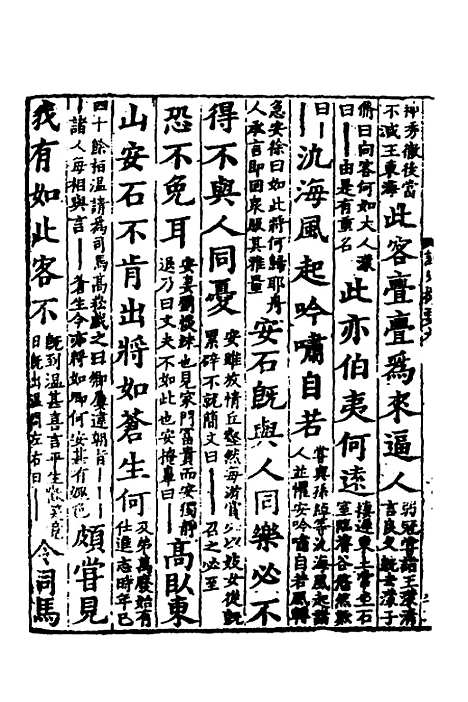 抑秀徹後當不減王東海此客亹亹爲來逼人弱冠嘗詣王濛清言良久既去濛子
脩曰向客何如大人濛曰——由是有重名此亦伯夷何遠東土嘗坐石室臨濬谷悠然歎
曰——汎海風起吟嘯自若嘗與孫綽等汎海風起諸人並懼安吟嘯自若風轉
急安徐曰如此將何歸耶舟人承言即回衆服其雅量安石既與人同樂必不
得不與人同憂安雖放情丘壑然每游賞必以妓女從既累辟不就簡文曰——召之必至
恐不免耳安妻劉惔妹也見家門富貴而安獨靜退乃曰丈夫不如此也安掩鼻曰——高臥東
山安石不肯出將如蒼生何及弟萬廢始有仕進志時年已
四十餘桓溫請爲司馬高崧戲之曰卿屢違朝旨——諸人每相與言——蒼生今亦將如卿何安甚有媿色頗嘗見
我有如此客不既到溫甚喜言平生歡笑竟日既出溫問左右曰——令司馬